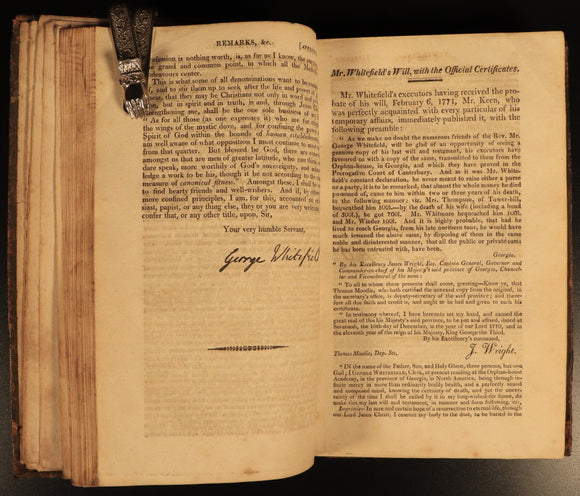 REMARKS, &c. [APPEN
ofession is nothing worth, is, as far as I know, the
grand and common point, in which all the
ndeavours center.
This is what some of all denominations want to be
and to stir them up to seek, after the life and power
that they may be Christians not only in word and
but in spirit and in truth, is and, through Jesus
strengthening me, shall be the one sole business of my
" As for all those (as one expresses it) who are for
the wings of the mystic dove, and for confining the
Spirit of God within the bounds of human
am well aware of what oppositions I must continue to
from that quarter. But blessed be God, there are
amongst us that are men of greater latitude, who can think
dare speak, more worthily of God's sovereignty, and
ledge a work to be his, though it be not according to the
measure of canonical fitness. Amongst these, I shall be
to find hearty friends and well-wishers. And if, by
more confined principles, I am, for this, accounted an
siast, papist, or any thing else, they or you are very welcome
confer that, or any other title, upon, Sir,
Your very humble Servant,
George Whitefield
Mr. Whitefield's Will, with the Official Certificates.
Mr. Whitefield's executors having received the pro-
bate of his will, February 6, 1771, Mr. Keen, who
was perfectly acquainted with every particular of his
temporary affairs, immediately published it, with the
following preamble:
" As we make no doubt the numerous friends of the Rev. Mr.
George Whitefield, will be glad of an opportunity of seeing a
genuine copy of his last will and testament, his executors have
favoured us with a copy of the same, transmitted to them from the
Orphan-house, in Georgia, and which they have proved in the
Prerogative Court of Canterbury. And as it was Mr. White-
field's constant declaration, he never meant to raise either a purse
or a party, it is to be remarked, that almost the whole money he died
possessed of, came to him within two or three years of his death,
in the following manner: viz. Mrs. Thompson, of Tower-hill,
bequeathed him 500l.—by the death of his wife (including a bond
of 300l.), he got 700l. Mr. Whitmore bequeathed him 100l.
and Mr. Winder 100l. And it is highly probable, that had he
lived to reach Georgia, from his late northern tour, he would have
much lessened the above sums, by disposing of them in the same
noble and disinterested manner, that all the public or private sums
he has been entrusted with, have been.
Georgia.
" By his Excellency James Wright, Esq. Captain General, Governor and
Commander-in-chief of his Majesty's said province of Georgia, Chancel-
lor and Vice-admiral of the same:
" To all to whom these presents shall come, greeting—Know ye, that
Thomas Moodie, who hath certified the annexed copy from the original, in
the secretary's office, is deputy-secretary of the said province; and there-
fore all due faith and credit is, and ought to be had and given to such his
certificate.
" In testimony whereof, I have hereunto set my hand, and caused the
great seal of this his Majesty's said province, to be put and affixed, dated at
Savannah, the 10th day of December, in the year of our Lord 1770, and in
the eleventh year of the reign of his Majesty, King George the Third.
By his Excellency's command,
Thomas Moodie, Dep. Sec. J. Wright.
" IN the name of the Father, Son, and Holy Ghost, three persons, but one
God; I GEORGE WHITEFIELD, Clerk, at present residing at the Orphan-house
Academy, in the province of Georgia, in North America, being through in-
finite mercy in more than ordinarily bodily health, and a perfectly sound
and composed mind, knowing the certainty of death, and yet the uncer-
tainty of the time I shall be called by it to my long-wished-for home, do
make this my last will and testament, in manner and form following, viz,
Imprimis—In sure and certain hope of a resurrection to eternal life, through
our Lord Jesus Christ, I commit my body to the dust, to be buried in the